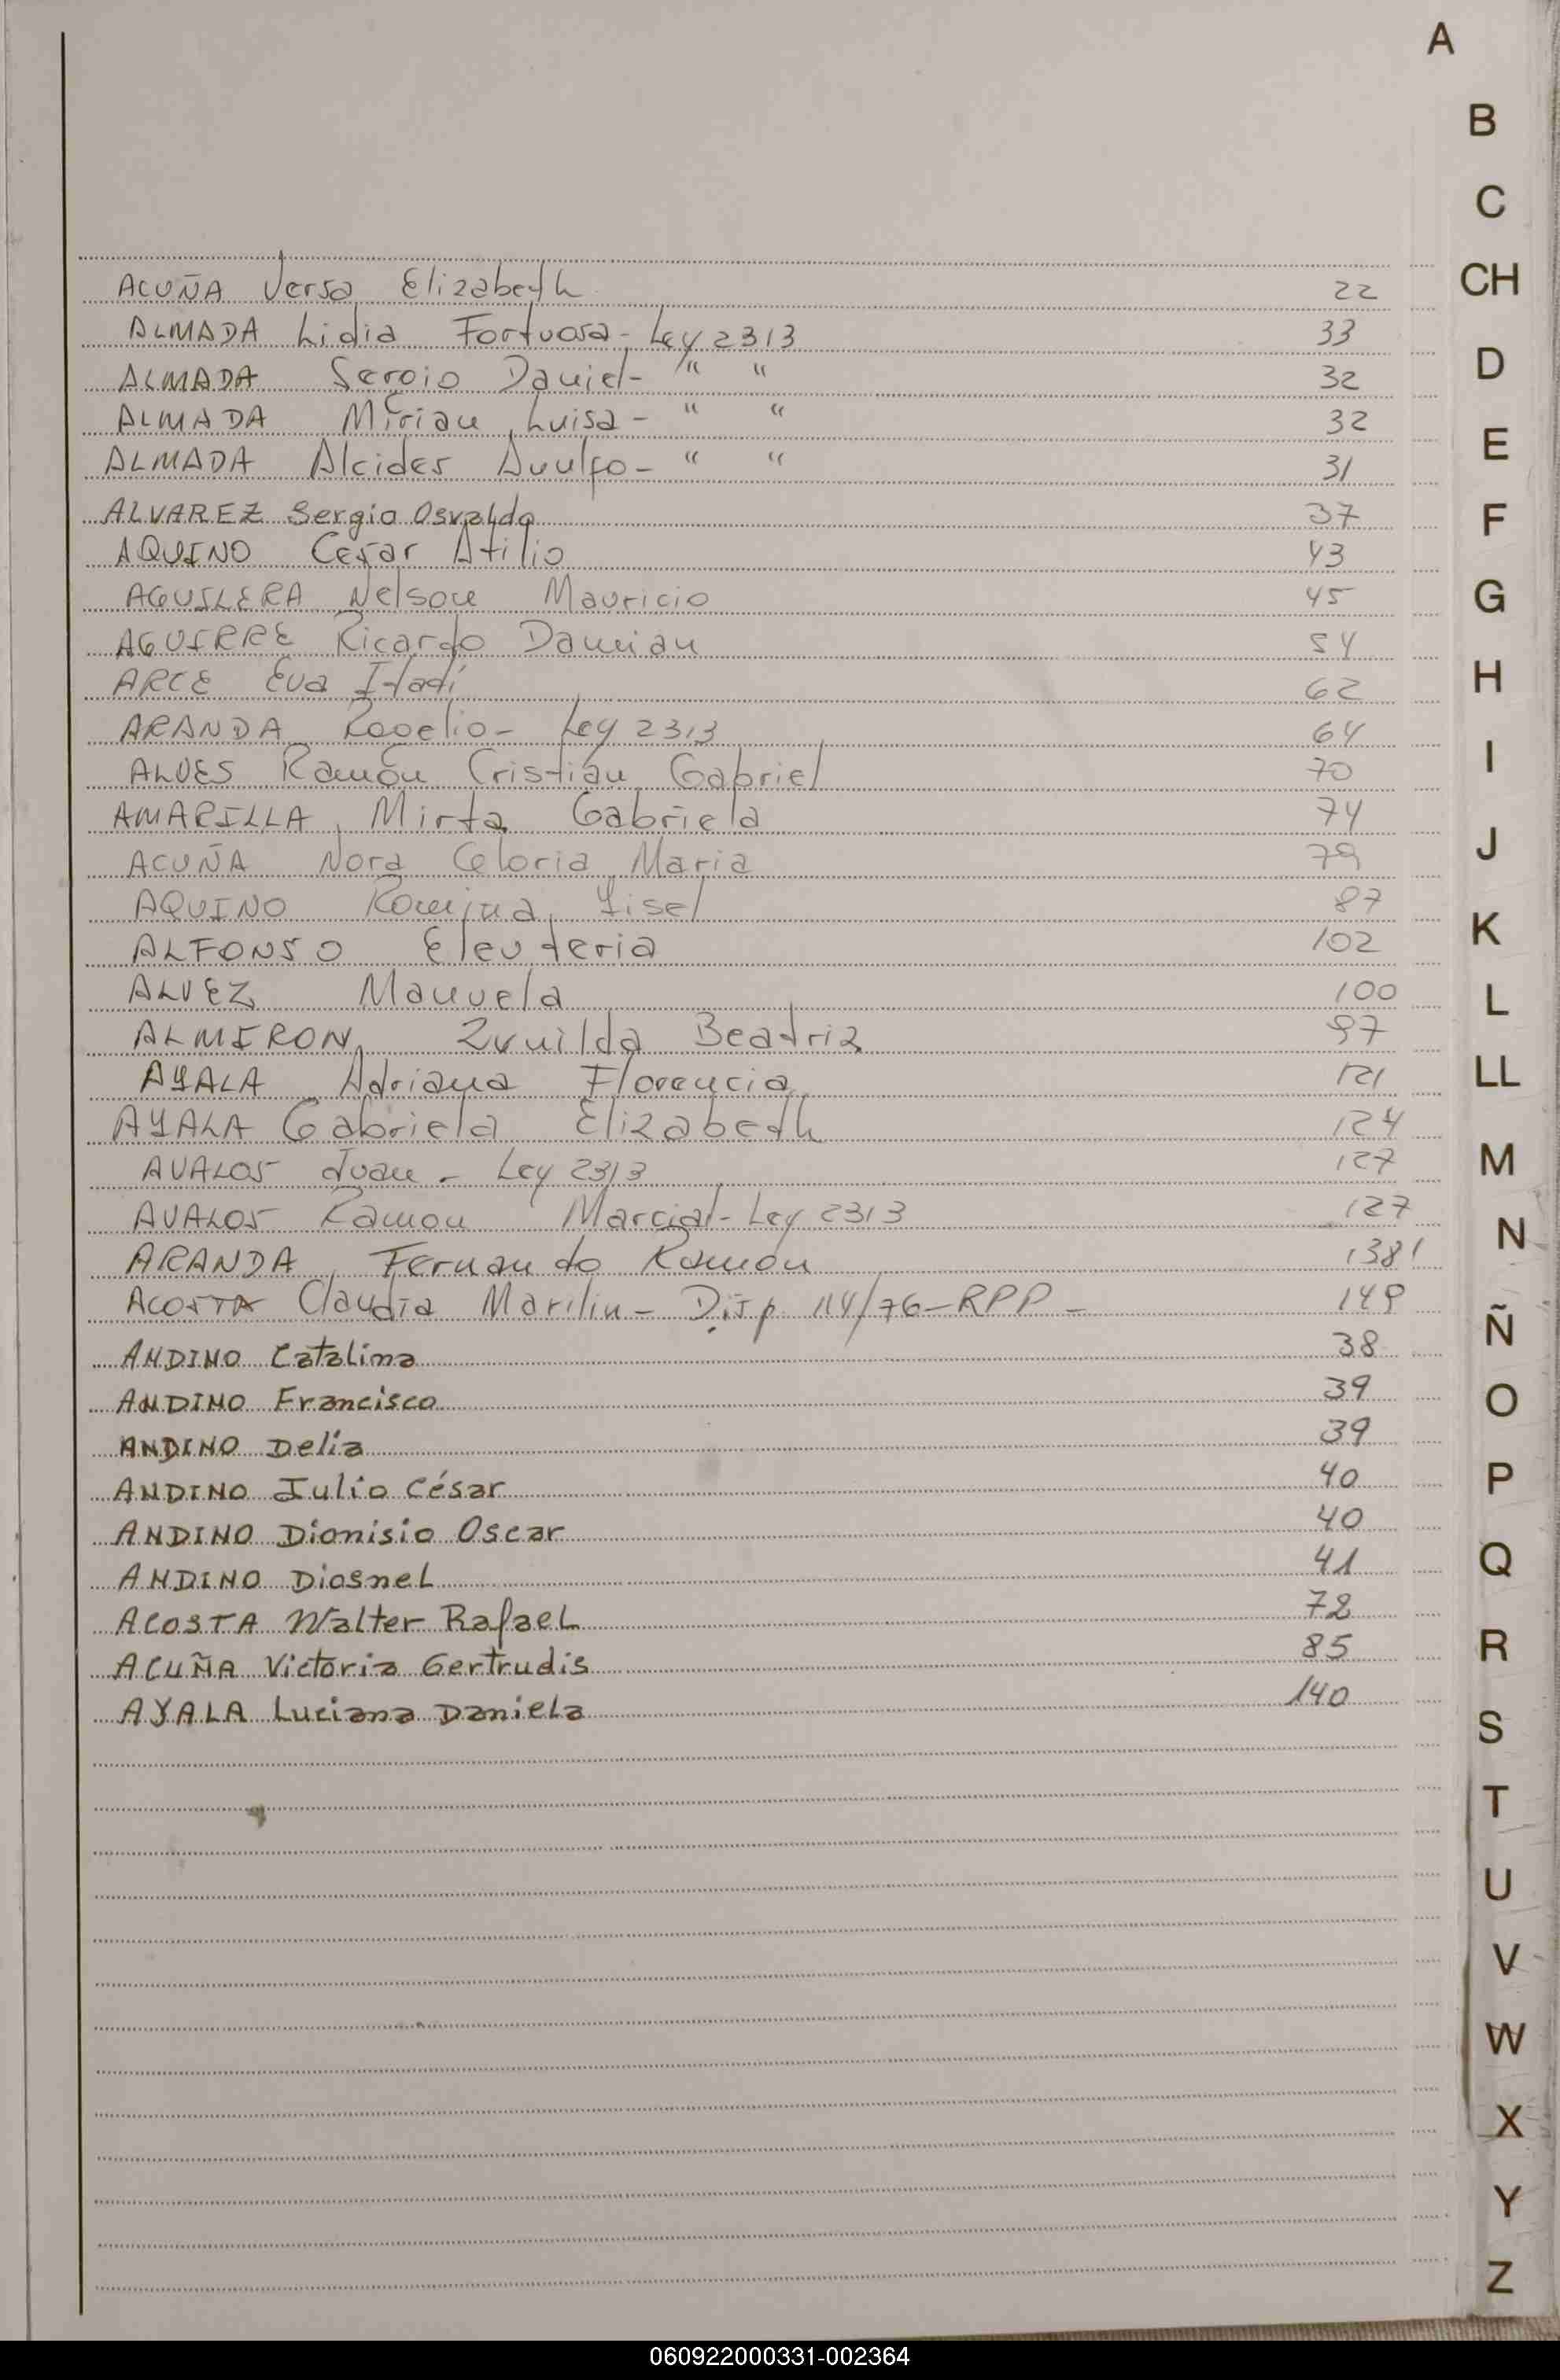 A
B
C
CH
D
E
F
G
H
I
J
K
L
LL
M
N
Ñ
O
P
Q
R
S
T
U
V
W
X
Y
Z
ACUÑA Versa Elizabeth 22
ALMADA Lidia Fortuosa - Ley 2313 33
ALMADA Sergio Daniel - " " 32
ALMADA Mirian Luisa - " " 32
ALMADA Alcides Anulfo - " " 31
ALVAREZ Sergio Osvaldo 37
AQUINO Cesar Atilio 43
AGUILERA Nelson Mauricio 45
AGUIRRE Ricardo Damian 54
ARCE Eva Itatí 62
ARANDA Rogelio - Ley 2313 64
ALVES Ramón Cristián Gabriel 70
AMARILLA Mirta Gabriela 74
ACUÑA Nora Gloria Maria 79
AQUINO Romina Yisel 87
ALFONSO Eleuteria 102
ALVEZ Manuela 100
ALMIRON Zunilda Beatriz 97
AYALA Adriana Florencia 121
AYALA Gabriela Elizabeth 124
AVALOS Juan - Ley 2313 127
AVALOS Ramon Marcial - Ley 2313 127
ARANDA Fernando Ramón 138
ACOSTA Claudia Marilin - Disp. 114/76 - RPP - 149
ANDINO Catalina 38
ANDINO Francisco 39
ANDINO Delia 39
ANDINO Julio César 40
ANDINO Dionisio Oscar 40
ANDINO Diosnel 41
ACOSTA Walter Rafael 72
ACUÑA Victoria Gertrudis 85
AYALA Luciana Daniela 140
060922000331-002364